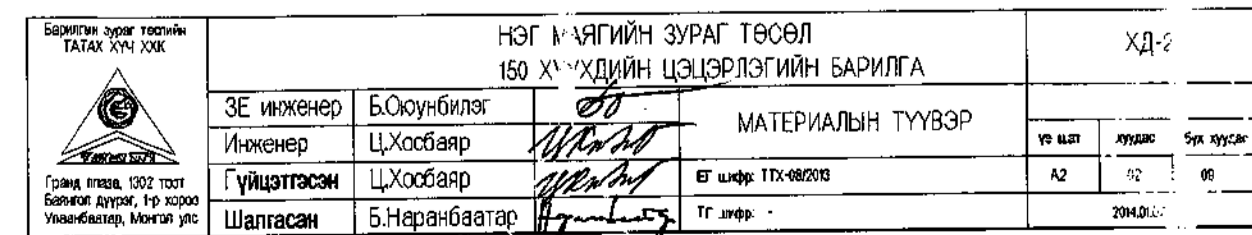 Барилгын зураг төслийн
ТАТАХ ХҮЧ ХХК
Гранд плаза, 1302 тоот
Баянгол дүүрэг, 1-р хороо
Улаанбаатар, Монгол улс
НЭГ МАЯГИЙН ЗУРАГ ТӨСӨЛ
150 ХҮҮХДИЙН ЦЭЦЭРЛЭГИЙН БАРИЛГА
ХД-2
ЗЕ инженер Б.Оюунбилэг
Инженер Ц.Хосбаяр
Гүйцэтгэсэн Ц.Хосбаяр
Шалгасан Б.Наранбаатар
МАТЕРИАЛЫН ТҮҮВЭР
ЕГ шифр: ТТХ-08/2013
ТГ шифр: -
үе шат хуудас бүх хуудас
А2 02 09